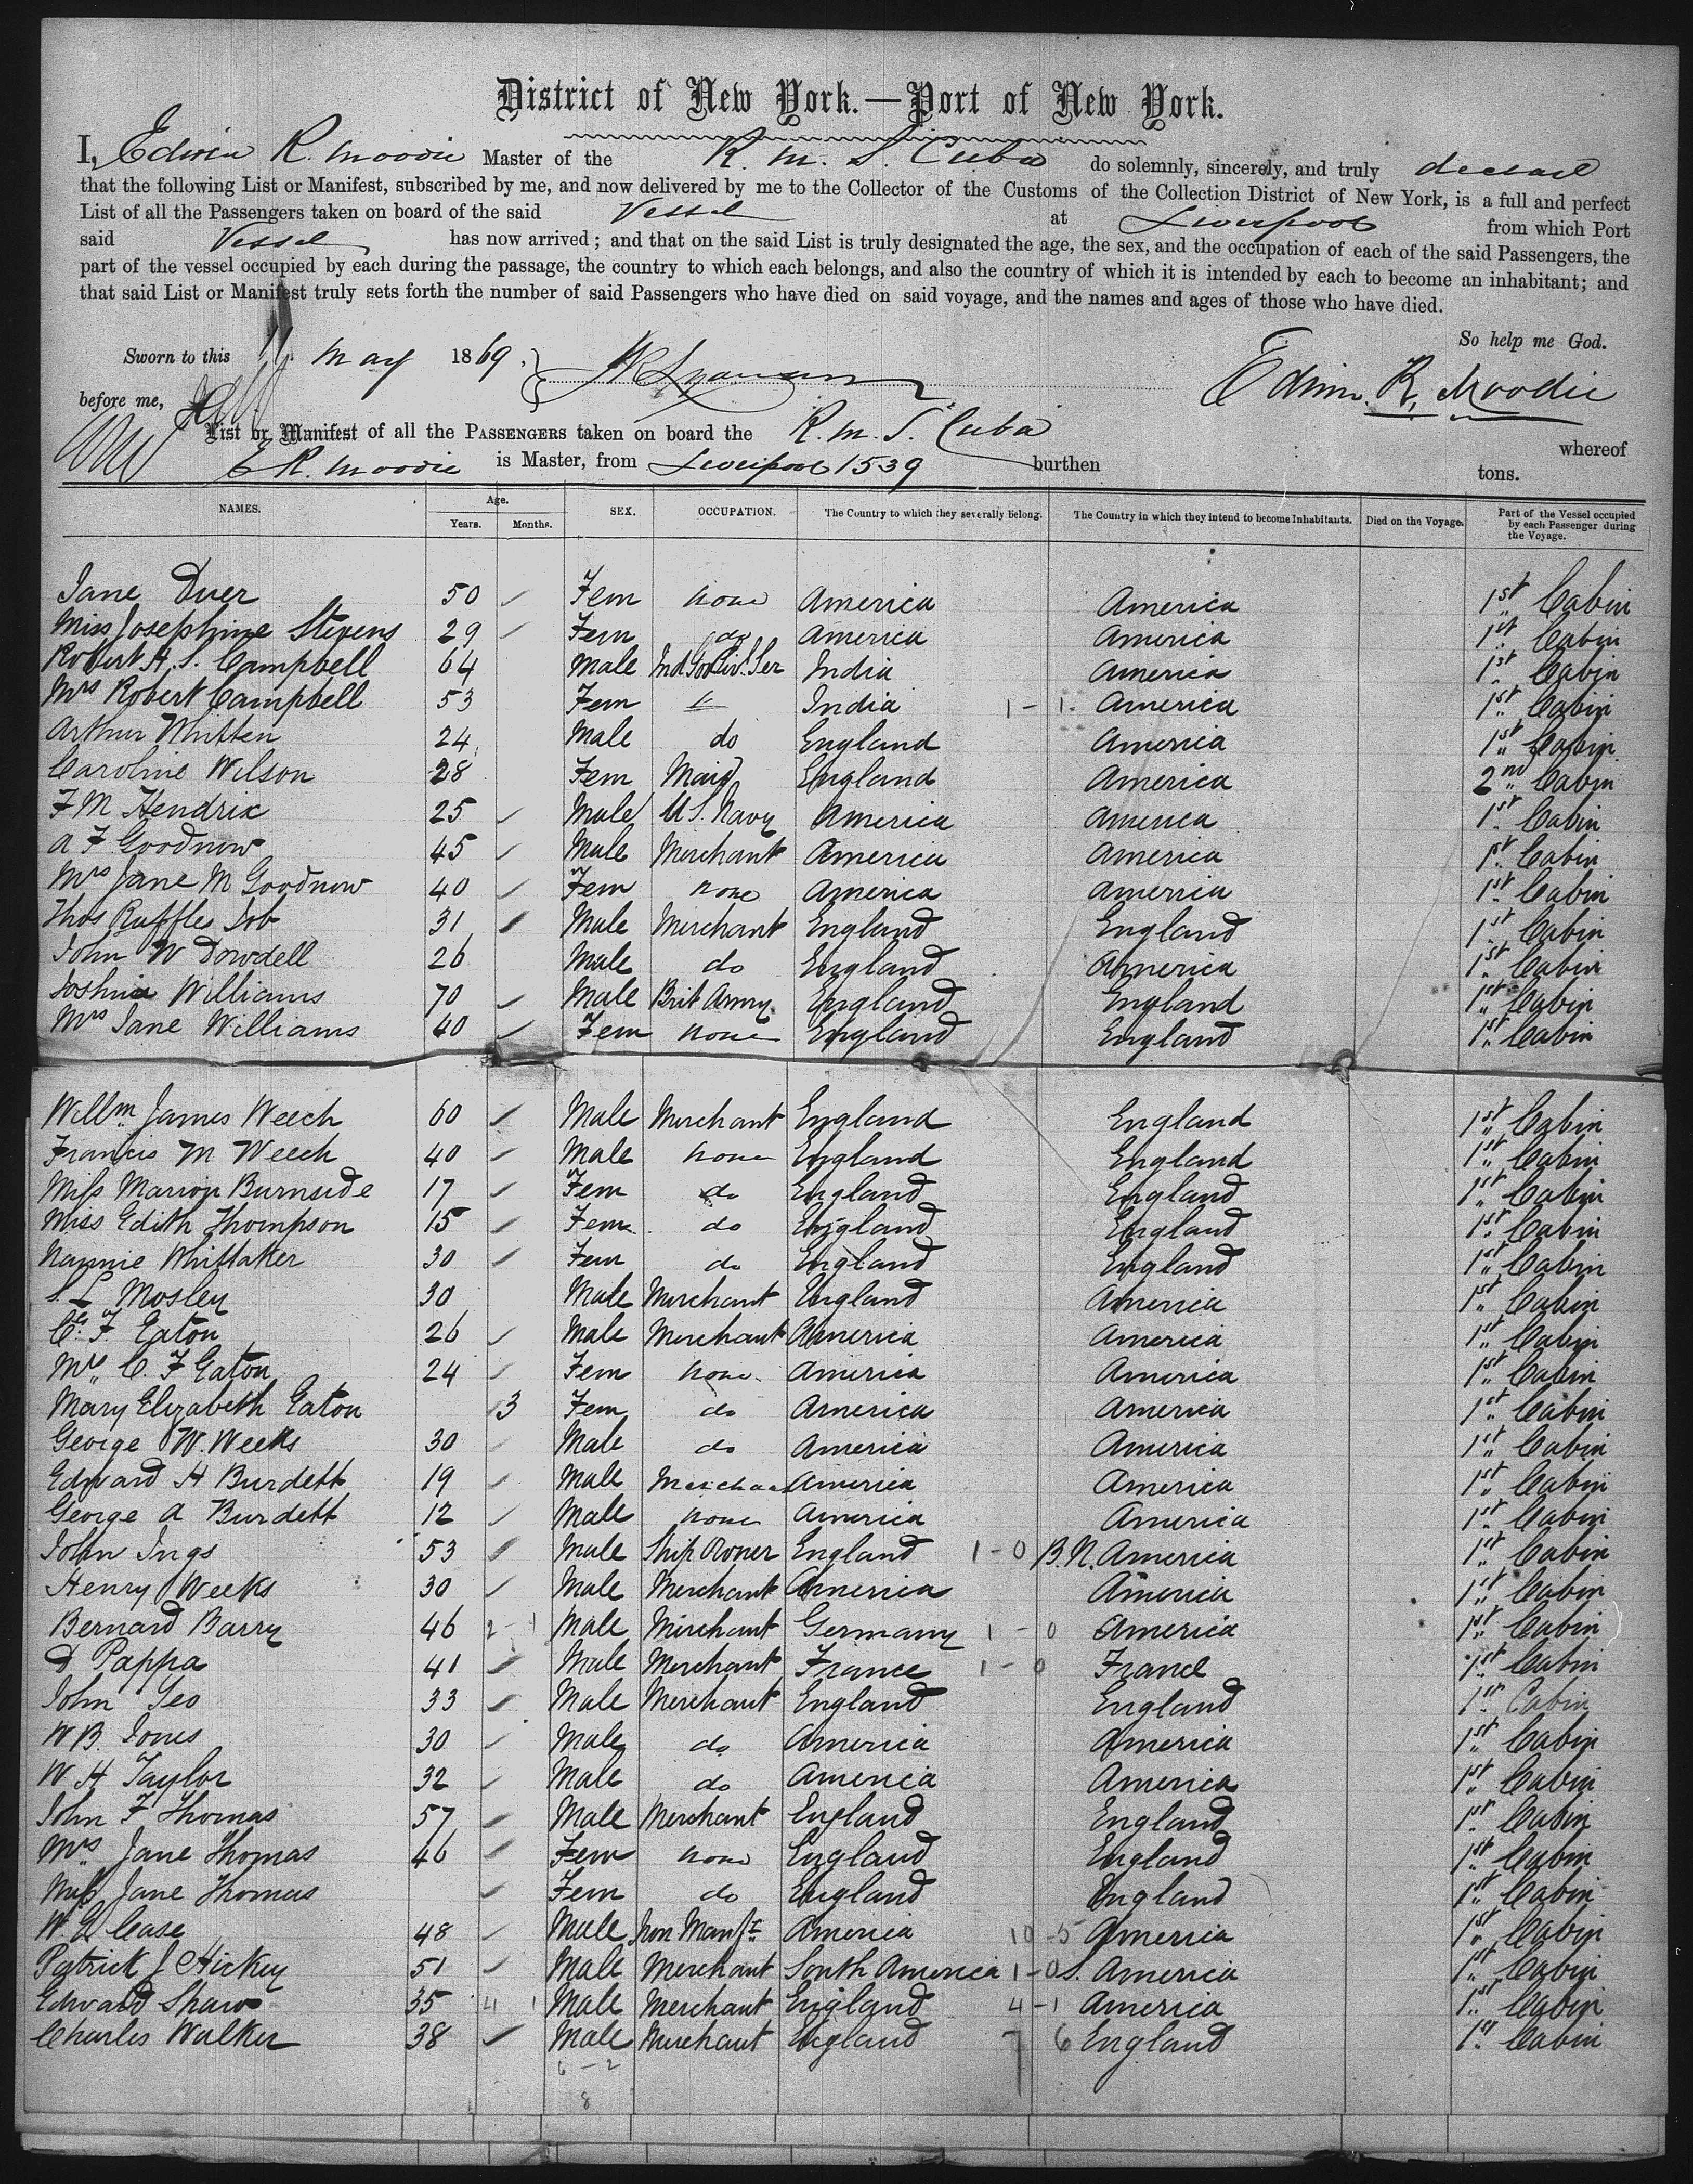 District of New York.—Port of New York.
I, Edwin R. Moodie Master of the R. M. S. Cuba do solemnly, sincerely, and truly declare
that the following List or Manifest, subscribed by me, and now delivered by me to the Collector of the Customs of the Collection District of New York, is a full and perfect
List of all the Passengers taken on board of the said Vessel at Liverpool from which Port
said Vessel has now arrived; and that on the said List is truly designated the age, the sex, and the occupation of each of the said Passengers, the
part of the vessel occupied by each during the passage, the country to which each belongs, and also the country of which it is intended by each to become an inhabitant; and
that said List or Manifest truly sets forth the number of said Passengers who have died on said voyage, and the names and ages of those who have died.
So help me God.
Sworn to this May 1869.
Edwin R. Moodie
before me,
List or Manifest of all the PASSENGERS taken on board the R. M. S. Cuba whereof
E R. Moodie is Master, from Liverpool 1539 burthen tons.
NAMES. Age. Years. Months. SEX. OCCUPATION. The Country to which they severally belong. The Country in which they intend to become Inhabitants. Died on the Voyage. Part of the Vessel occupied by each Passenger during the Voyage.
Jane Duer 50 Fem none America America 1st Cabin
Miss Josephine Stevens 29 Fem do America America 1st Cabin
Robert H. S. Campbell 64 Male Ind Gov Civ. Ser India America 1st Cabin
Mrs Robert Campbell 53 Fem " India 1 - 1. America 1st Cabin
Arthur Whitten 24 Male do England America 1st Cabin
Caroline Wilson 28 Fem Maid England America 2nd Cabin
F M Hendrix 25 Male U S. Navy America America 1st Cabin
A F Goodnow 45 Male Merchant America America 1st Cabin
Mrs Jane M Goodnow 40 Fem none America America 1st Cabin
Thos Raffles Job 31 Male Merchant England England 1st Cabin
John W Dowdell 26 Male do England America 1st Cabin
Joshua Williams 70 Male Brit Army England England 1st Cabin
Mrs Jane Williams 40 Fem none England England 1st Cabin
Willm James Weech 60 Male Merchant England England 1st Cabin
Francis M Weech 40 Male none England England 1st Cabin
Miss Marion Burnside 17 Fem do England England 1st Cabin
Miss Edith Thompson 15 Fem do England England 1st Cabin
Nannie Whittaker 30 Fem do England England 1st Cabin
S. L Mosley 30 Male Merchant England America 1st Cabin
C. F. Eaton 26 Male Merchant America America 1st Cabin
Mrs C. F Eaton 24 Fem none America America 1st Cabin
Mary Elizabeth Eaton 3 Fem do America America 1st Cabin
George W. Weeks 30 Male do America America 1st Cabin
Edward H Burdett 19 Male Merchant America America 1st Cabin
George A Burdett 12 Male none America America 1st Cabin
John Ings 53 Male Ship Owner England 1 - 0 B. N. America 1st Cabin
Henry Weeks 30 Male Merchant America America 1st Cabin
Bernard Barry 46 2 - 1 Male Merchant Germany 1 - 0 America 1st Cabin
D Pappa 41 Male Merchant France 1 - 0 France 1st Cabin
John Geo 33 Male Merchant England England 1st Cabin
W B. Jones 30 Male do America America 1st Cabin
W H Taylor 32 Male do America America 1st Cabin
John F Thomas 57 Male Merchant England England 1st Cabin
Mrs Jane Thomas 46 Fem none England England 1st Cabin
Miss Jane Thomas Fem do England England 1st Cabin
W. G Case 48 Male Iron Manfr America 10 - 5 America 1st Cabin
Patrick J Hickey 51 Male Merchant South America 1 - 0 S. America 1st Cabin
Edward Shaw 35 4 1 Male Merchant England 4 - 1 America 1st Cabin
Charles Walker 38 Male Merchant England 7 6 England 1st Cabin
6 - 2
8